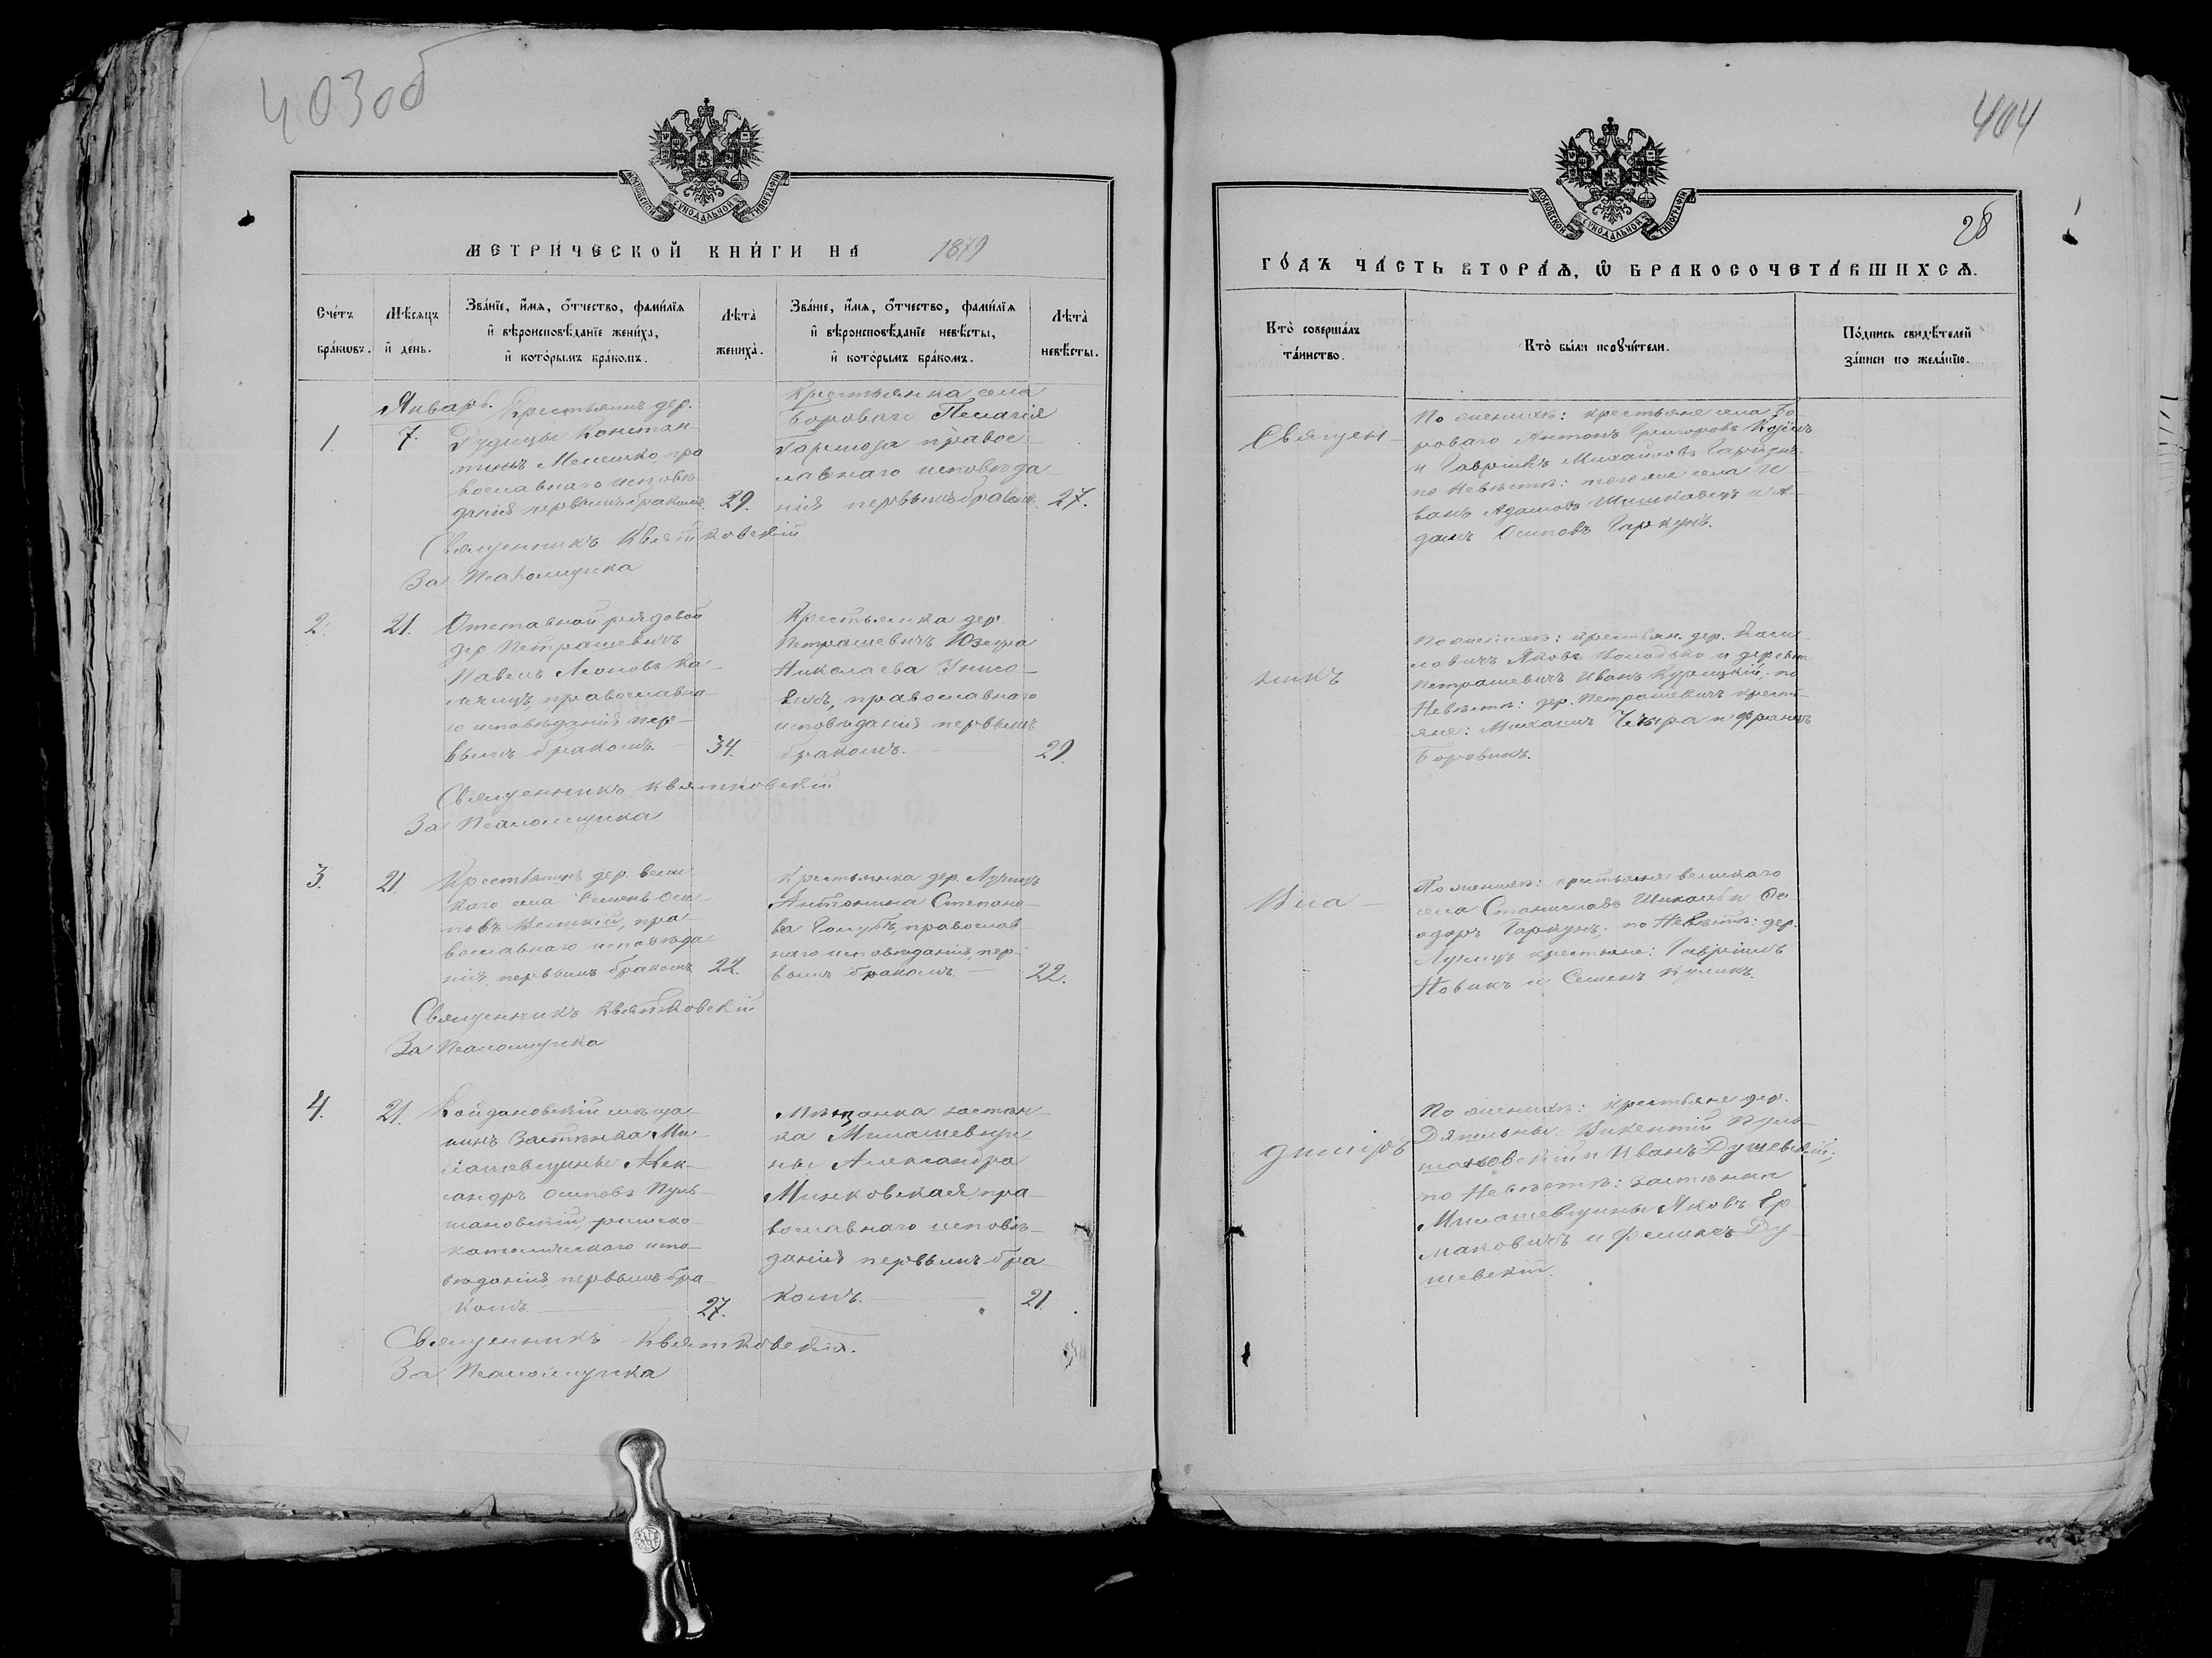 403об
МОСКОВСКОЙ СУНОДАЛЬНОЙ ТИПОГРАФІИ
МЕТРИЧЕСКОЙ КНИГИ НА 1879
Счетъ браковъ.
Мѣсяцъ и день.
Званіе, имя, отчество, фамилія
и вѣроисповѣданіе жениха,
и которымъ бракомъ.
Лѣта
жениха.
Званіе, имя, отчество, фамилія
и вѣроисповѣданіе невѣсты,
и которымъ бракомъ.
Лѣта
невѣсты.
Январь.
1.
7.
Крестьянинъ дер.
Рудицы Констан-
тинъ Мелешко, пра
вославнаго исповѣ-
данія первымъ бракомъ.
29.
Крестьянка села
Бороваго Пелагія
православнаго исповѣда-
нія первымъ бракомъ.
27.
Священникъ Квятковскій
За Псаломщика
2.
21.
Отставной рядовой
дер Петрашевичъ
Павелъ Леоновъ
православна-
го исповѣданія пер-
вымъ бракомъ.
34.
Крестьянка дер.
Петрашевичъ Юзефа
Николаева
православнаго
исповѣданія первымъ
бракомъ.
29.
Священникъ Квятковскій
За Псаломщика
3.
21.
Крестьянинъ дер. Вели-
каго села Семенъ Оси-
повъ пра-
вославнаго исповѣда-
нія, первымъ бракомъ
22.
Крестьянка дер. Лучицъ
Антонина Степано-
ва Голубъ, православ
наго исповѣданія, пер-
вымъ бракомъ
22.
Священникъ Квятковскій
За Псаломщика
4.
21.
Койдановскій мѣща-
нинъ Застѣнка Ми-
лашевщины Алек-
сандръ Осиповъ Пуль-
мановскій, римско-
католическаго испо-
вѣданія, первымъ бра-
комъ.
27.
Мѣщанка застѣн-
ка Милашевщи-
ны Александра
Минковская пра-
вославнаго исповѣ-
данія первымъ бра
комъ.
21.
Священникъ Квятковскій.
За Псаломщика
404
МОСКОВСКОЙ СУНОДАЛЬНОЙ ТИПОГРАФІИ
28
ГОДЪ ЧАСТЬ ВТОРАЯ, Ѡ БРАКОСОЧЕТАВШИХСЯ.
Кто совершалъ
таинство.
Кто были поручители.
Подпись свидѣтелей
записи по желанію.
Священ-
По женихѣ: крестьяне села Бо
роваго Антонъ Григоровъ
и Гавріилъ Михайловъ
по Невѣстѣ: того же села И-
ванъ Адамовъ Шишковецъ и А-
дамъ Осиповъ Гаркунъ.
никъ
По женихѣ: крестьян. дер.
Яковъ Колодько и деревни
Петрашевичъ Иванъ Курицкій, по
Невѣстѣ: дер. Петрашевичъ крестья-
яне: Михаилъ Чечыра и Францъ
Боровикъ.
Вла-
По женихѣ: крестьяне великаго
села Станиславъ и Фе
одоръ Гаркунъ; по Невѣстѣ: дер.
Лучицъ крестьяне: Гавріилъ
Новикъ и Семенъ Куликъ.
диміръ
По женихѣ: крестьяне дер.
Викентій Пуль-
мановскій и Иванъ Душевскій;
по Невѣстѣ: застѣнка
Милашевщины Яковъ Ер-
маковичъ и Феликсъ Ду-
шевскій.